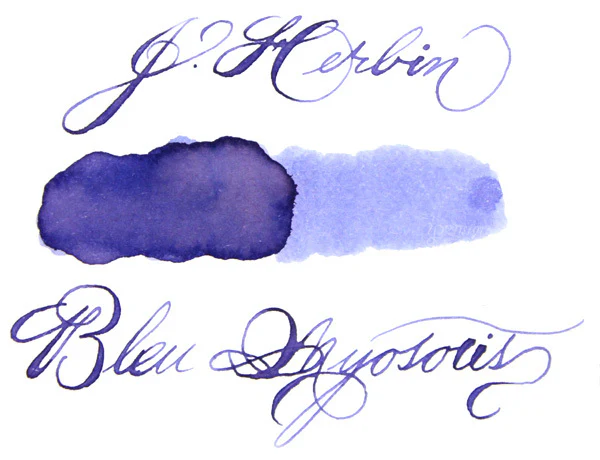 J. Herbin
Bleu Myosotis